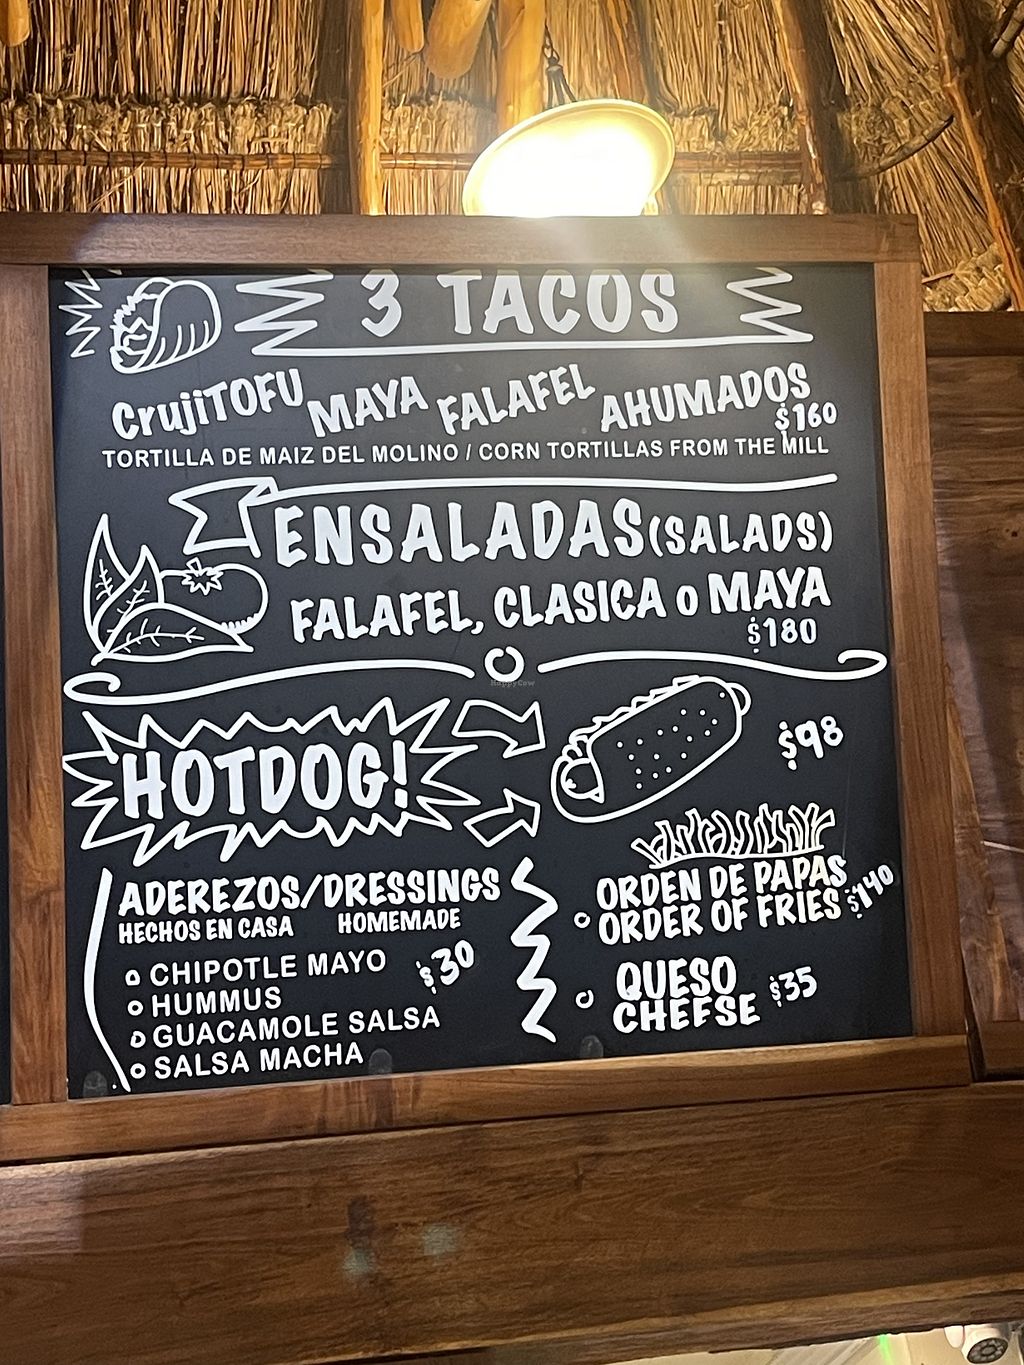 3 TACOS
CrujiTOFU MAYA FALAFEL AHUMADOS
$160
TORTILLA DE MAIZ DEL MOLINO / CORN TORTILLAS FROM THE MILL
ENSALADAS (SALADS)
FALAFEL, CLASICA o MAYA
$180
HappyCow
HOTDOG!
$98
ADEREZOS/DRESSINGS
HECHOS EN CASA HOMEMADE
CHIPOTLE MAYO $30
HUMMUS
GUACAMOLE SALSA
SALSA MACHA
ORDEN DE PAPAS
ORDER OF FRIES $140
QUESO
CHEESE $35